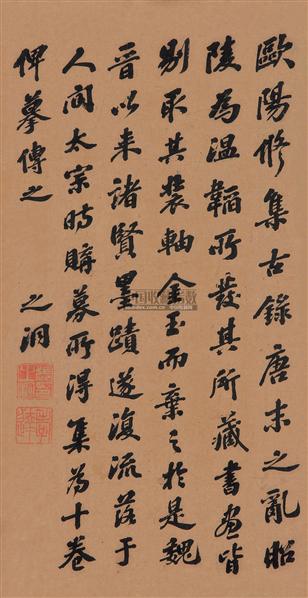 歐陽脩集古錄唐末之亂昭
陵為溫韜所發其所藏書畫皆
剔取其裝軸金玉而棄之於是魏
晉以來諸賢墨蹟遂復流落于
人間太宗時購募所得集為十卷
俾摹傳之
之洞